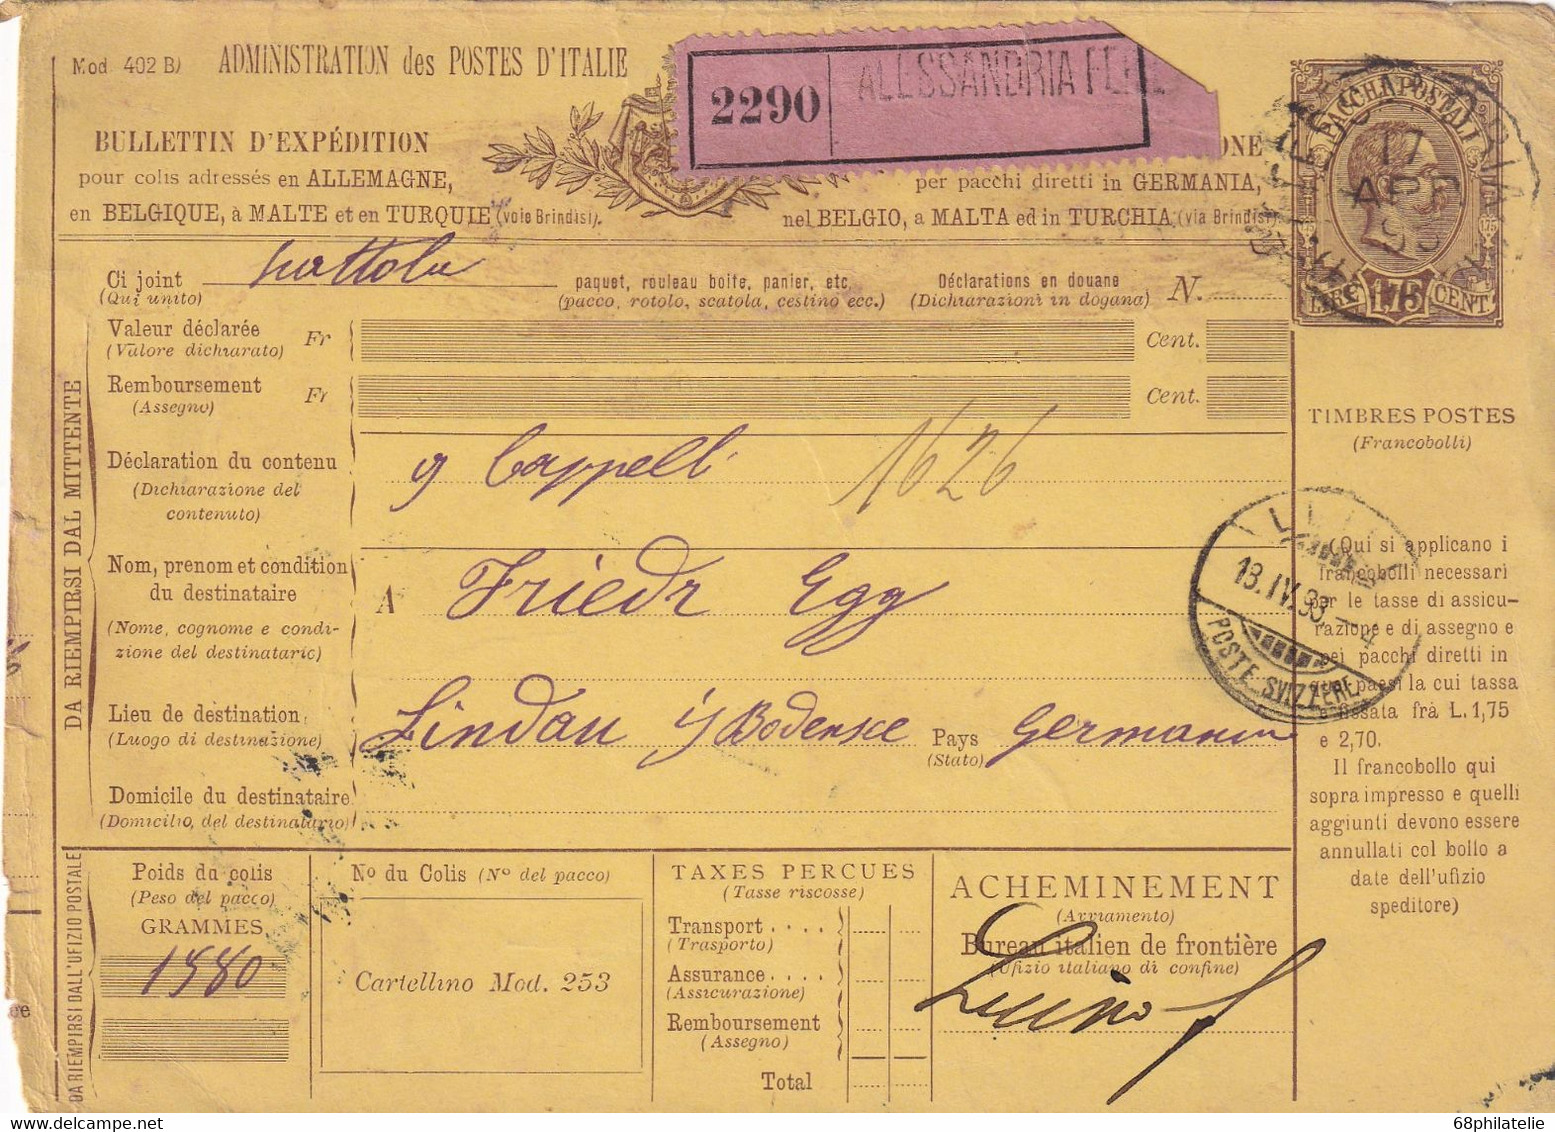 Mod. 402 B)
ADMINISTRATION des POSTES D'ITALIE
2290
ALESSANDRIA
BULLETTIN D'EXPÉDITION
pour colis adressés en ALLEMAGNE,
en BELGIQUE, à MALTE et en TURQUIE (voie Brindisi).
ONE
per pacchi diretti in GERMANIA,
nel BELGIO, a MALTA ed in TURCHIA (via Brindisi).
PACCHI POSTALI
17
APR
93
175
LIRE 1,75 CENT.
Ci joint
(Qui unito)
scattola
paquet, rouleau boite, panier, etc.
(pacco, rotolo, scatola, cestino ecc.)
Déclarations en douane
(Dichiarazioni in dogana)
N.
DA RIEMPIRSI DAL MITTENTE
Valeur déclarée
(Valore dichiarato)
Fr
Cent.
Remboursement
(Assegno)
Fr
Cent.
Déclaration du contenu
(Dichiarazione del
contenuto)
9 Cappelli
1626
Nom, prenom et condition
du destinataire
(Nome, cognome e condi-
zione del destinatario)
A Friedr Egg
Lieu de destination
(Luogo di destinazione)
Lindau i/Bodensee
Pays
(Stato)
Germania
Domicile du destinataire
(Domicilio, del destinatario)
TIMBRES POSTES
(Francobolli)
(Qui si applicano i
francobolli necessari
per le tasse di assicu-
razione e di assegno e
pei pacchi diretti in
quei paesi la cui tassa
è fissata fra L. 1,75
e 2,70.
Il francobollo qui
sopra impresso e quelli
aggiunti devono essere
annullati col bollo a
date dell'ufizio
speditore)
18.IV.93.-4
POSTE SVIZZERE
DA RIEMPIRSI DALL'UFIZIO POSTALE
Poids du colis
(Peso del pacco)
GRAMMES
1980
No du Colis (N° del pacco)
Cartellino Mod. 253
TAXES PERCUES
(Tasse riscosse)
Transport
(Trasporto)
Assurance
(Assicurazione)
Remboursement
(Assegno)
Total
ACHEMINEMENT
(Avviamento)
Bureau italien de frontière
(Ufizio italiano di confine)
Luino
ee
68philatelie